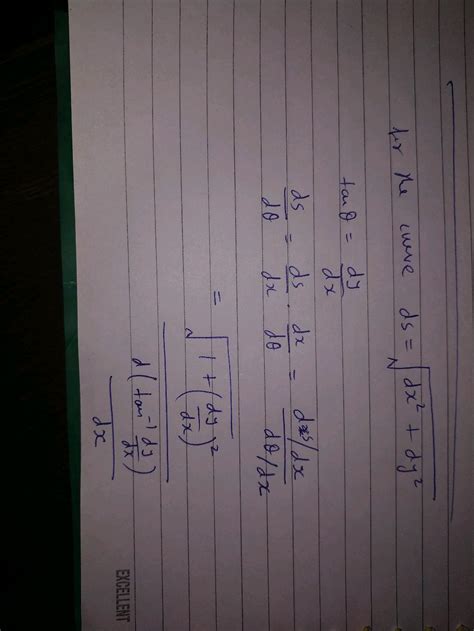 for the curve ds = √(dx² + dy²)
tanθ = dy/dx
ds/dθ = ds/dx · dx/dθ = (ds/dx)/(dθ/dx)
= √(1 + (dy/dx)²) / (d(tan⁻¹ dy/dx)/dx)
EXCELLENT